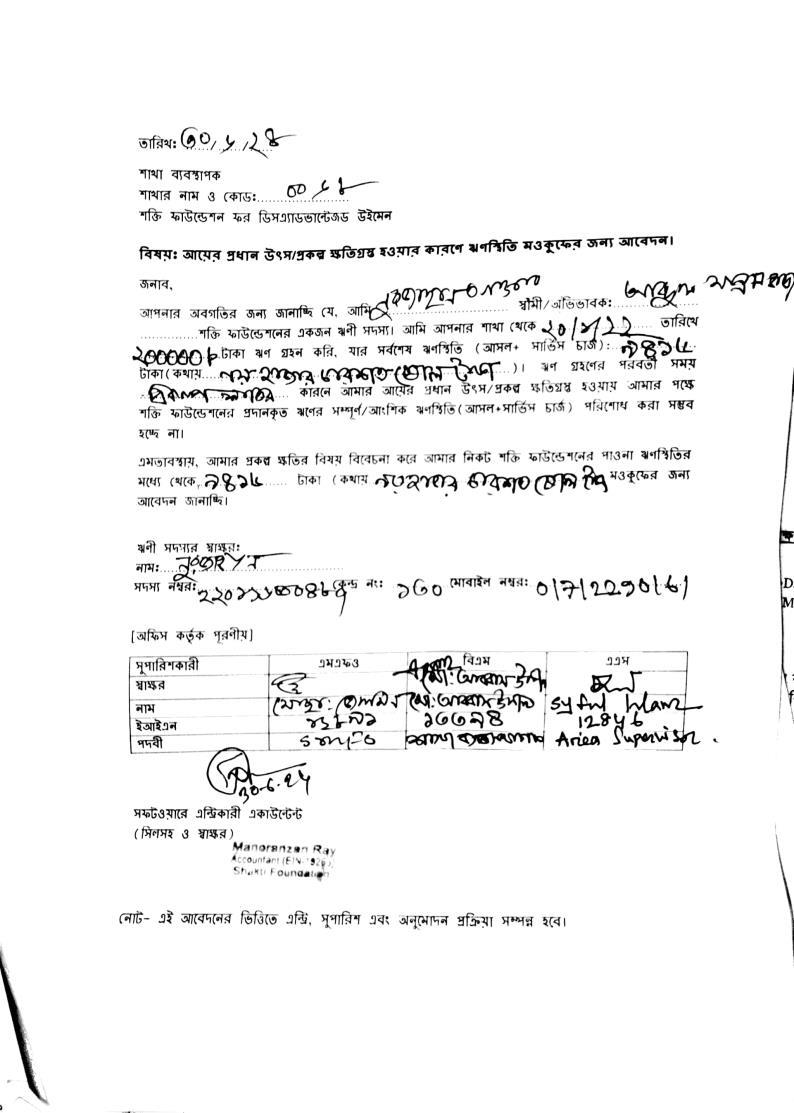 তারিখ: ৩০/৬/২৪
শাখা ব্যবস্থাপক
শাখার নাম ও কোড:
শক্তি ফাউন্ডেশন ফর ডিসএ্যাডভান্টেজড উইমেন
বিষয়: আয়ের প্রধান উৎস/প্রকল্প ক্ষতিগ্রস্ত হওয়ার কারণে ঋণস্থিতি মওকুফের জন্য আবেদন।
জনাব,
আপনার অবগতির জন্য জানাচ্ছি যে, আমি স্বামী/অভিভাবক:
শক্তি ফাউন্ডেশনের একজন ঋণী সদস্য। আমি আপনার শাখা থেকে ২০/১/২২ তারিখে
২০০০০০৳ টাকা ঋণ গ্রহন করি, যার সর্বশেষ ঋণস্থিতি (আসল+ সার্ভিস চার্জ): ৯৪১৬
টাকা(কথায় নয় হাজার চারশত ষোল টাকা)। ঋণ গ্রহণের পরবর্তী সময়
কারনে আমার আয়ের প্রধান উৎস/প্রকল্প ক্ষতিগ্রস্ত হওয়ায় আমার পক্ষে
শক্তি ফাউন্ডেশনের প্রদানকৃত ঋণের সম্পূর্ণ/আংশিক ঋণস্থিতি(আসল+সার্ভিস চার্জ) পরিশোধ করা সম্ভব
হচ্ছে না।
এমতাবস্থায়, আমার প্রকল্প ক্ষতির বিষয় বিবেচনা করে আমার নিকট শক্তি ফাউন্ডেশনের পাওনা ঋণস্থিতির
মধ্যে থেকে, ৯৪১৬ টাকা (কথায় নয় হাজার চারশত ষোল মওকুফের জন্য
আবেদন জানাচ্ছি।
ঋণী সদস্যর স্বাক্ষর:
নাম:
সদস্য নম্বর: কেন্দ্র নং: ১৬০ মোবাইল নম্বর: 01712290161
[অফিস কর্তৃক পূরণীয়]
সুপারিশকারী এমএফও বিএম এএস
স্বাক্ষর
নাম Syful Islam
ইআইএন ১৩৩৭৪ 12846
পদবী শাখা ব্যবস্থাপক Area Supervisor.
৩০.৬.২৪
সফটওয়ারে এন্ট্রিকারী একাউন্টেন্ট
(সিলসহ ও স্বাক্ষর)
Manoranzan Ray
Accountant (EIN-1926)
Shakti Foundation
নোট- এই আবেদনের ভিত্তিতে এন্ট্রি, সুপারিশ এবং অনুমোদন প্রক্রিয়া সম্পন্ন হবে।